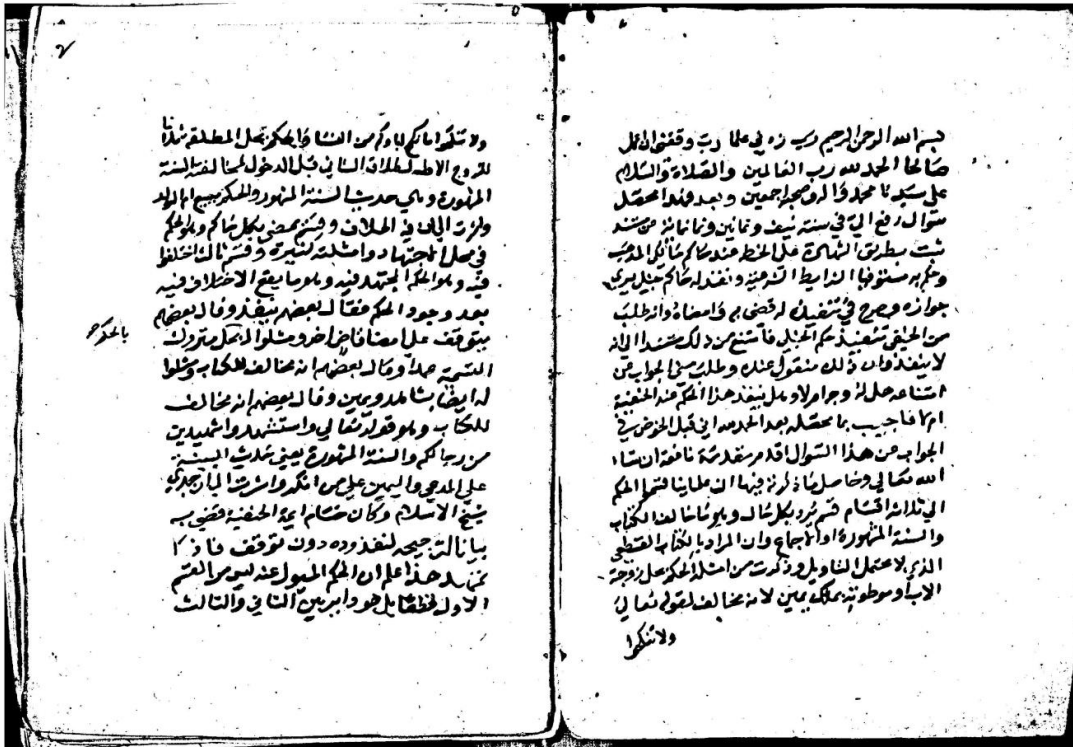 بسم الله الرحمن الرحيم رب زدني علما رب وفقني ان اعمل
صالحا الحمد لله رب العالمين والصلاة والسلام
على سيدنا محمد واله وصحبه اجمعين وبعد فهذا محصل
سوال رفع الي في سنة نيف وثمانين وثمانمائة من مستند
ثبت بطريق الشهادة على الخط عند حاكم مالكي المذهب
وحكم به مستوفيا الشرايط الشرعية ونفذ له حاكم حنبلي يرى
جوازه وصرح في تنفيذه له قضى به وامضاه وانه طلب
من الحنفي تنفيذ حكم الحنبلي فامتنع من ذلك مستندا الى انه
لا ينفذ وان ذلك منقول عنده وطلب مني الجواب عن
امتناعه هل له وجه ام لا وهل ينفذ هذا الحكم عند الحنفية
ام لا فاجيب بما محصله بعد الحمد لله اني قبل الخوض في
الجواب عن هذا السوال اقدم مقدمة نافعة ان شاء
الله تعالى وحاصل ما ذكرته فيها ان علماينا قسموا الحكم
الى ثلاثة اقسام قسم يرد بكل حال وهو ما خالف الكتاب
والسنة المشهورة او الاجماع وان المراد بالكتاب القطعي
الذي لا يحتمل التاويل وذكرت من امثلة الحكم على زوجة
الاب او موطوئته بملك يمين لانه مخالف لقوله تعالى
ولا تنكحوا
ولا تنكحوا ما نكح اباوكم من النسا والحكم بحل المطلقة ثلاثا
للزوج الاول بطلاق الثاني قبل الدخول لمخالفته السنة
المشهورة وهي حديث السنة المشهور والحكم ببيع ام الولد
في الخلاف وقسم يمضي بكل حال وهو الحكم
في محل الاجتهاد وامثلته كثيرة وقسم ثالث اختلفوا
فيه وهو الحكم المجتهد فيه وهو ما يقع الاختلاف فيه
بعد وجود الحكم فقال بعضهم ينفذ وقال بعضهم
يتوقف على امضا قاض اخر ومثلوا له بحل متروك
التسمية عمدا وقال بعضهم انه مخالف للكتاب ومثلوا
له ايضا بشاهد ويمين وقال بعضهم انه مخالف
للكتاب وهو قوله تعالى واستشهدوا شهيدين
من رجالكم والسنة المشهورة يعني حديث البينة
على المدعي واليمين على من انكر واشرت الى ان جدي
شيخ الاسلام وكان ختام ايمة الحنفية قضى به
بيانا لترجيحه لنفوذه دون توقف فاذا
تمهد هذا علم ان الحكم المسيول عنه ليس من القسم
الاول لحظة بل هو داير بين الثاني والثالث
بالحكم صح